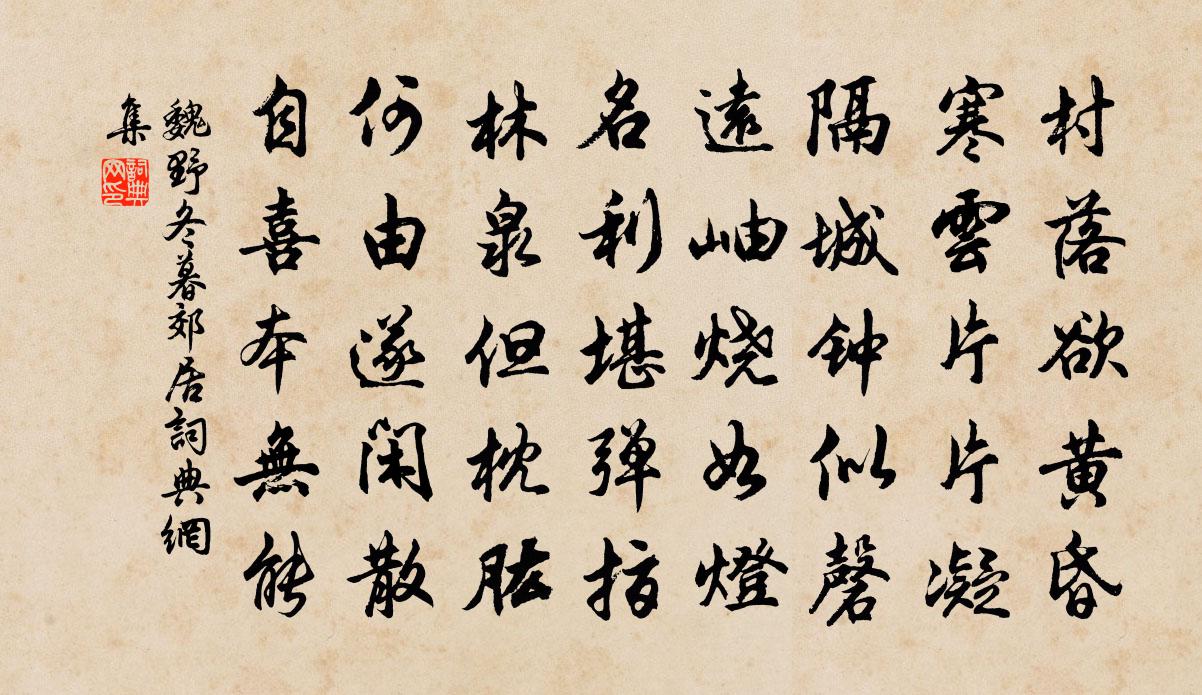 村落欲黄昏
寒雲片片凝
隔城钟似磬
遠岫烧如燈
名利堪弹指
林泉但枕肱
何由遂闲散
自喜本無能
魏野冬暮郊居詞典網
集
詞典
网印